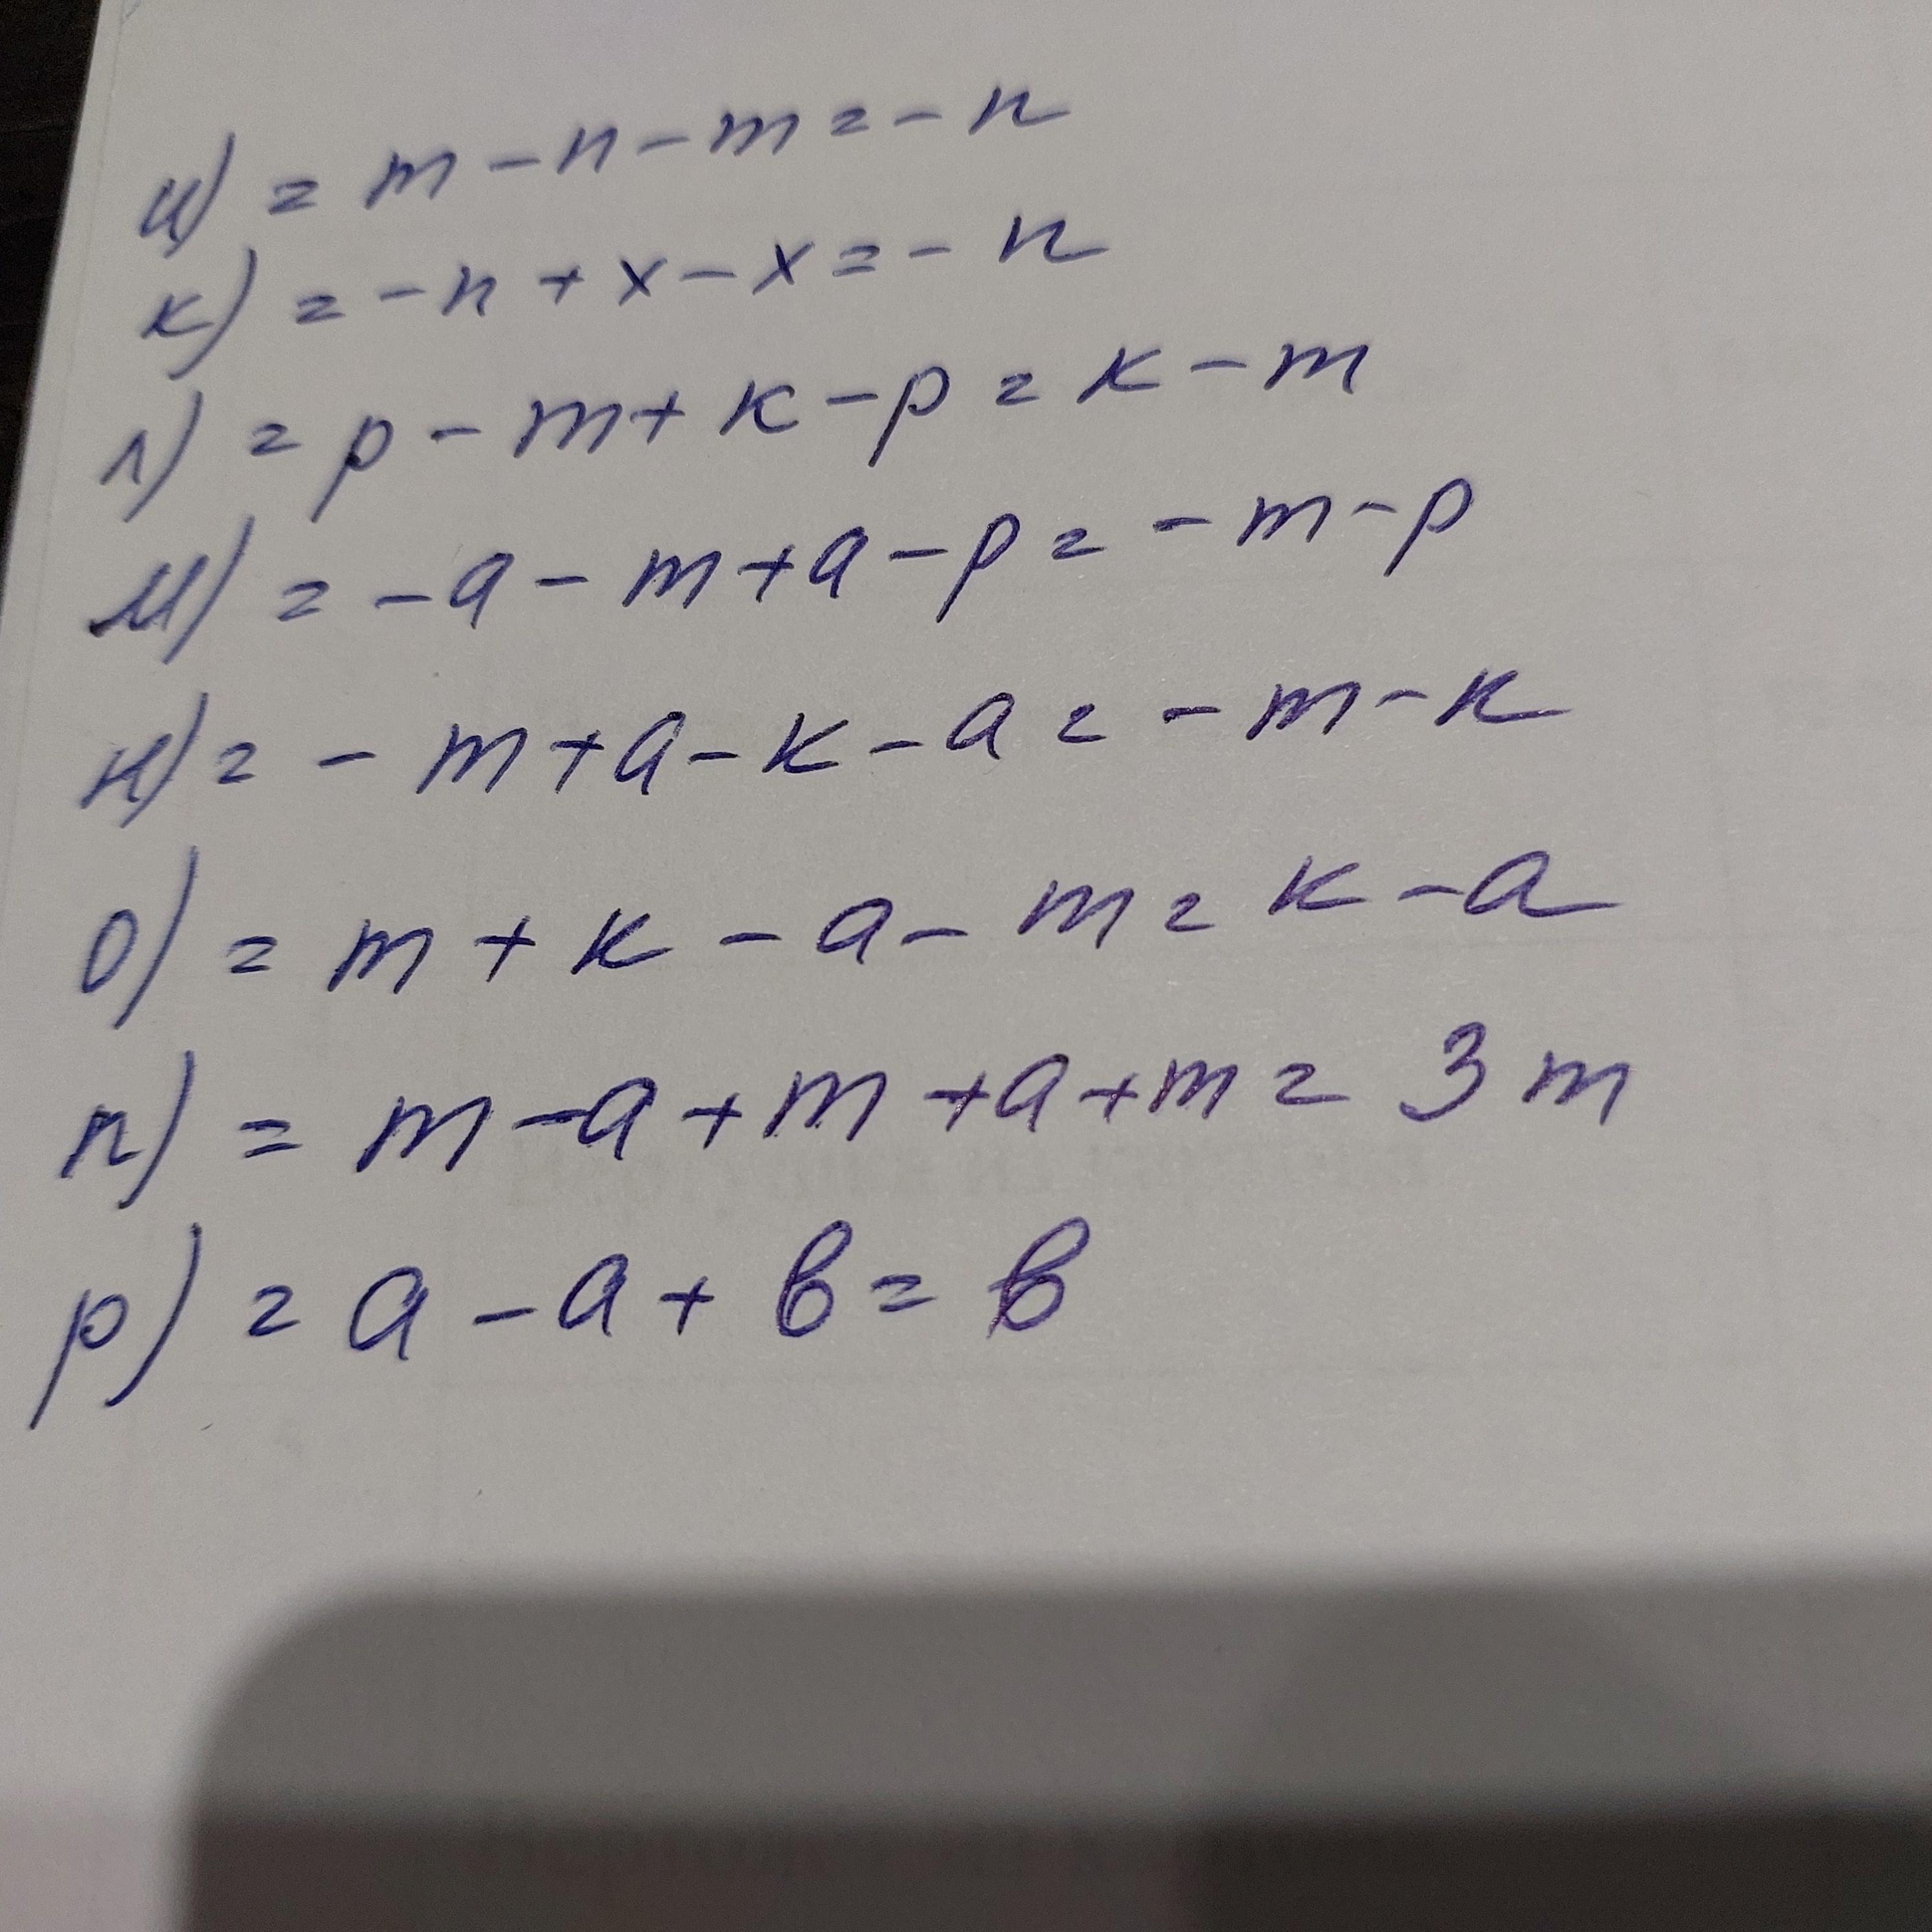 и) = m - n - m = - n
к) = - n + x - x = - n
л) = p - m + к - p = к - m
м) = - a - m + a - p = - m - p
н) = - m + a - к - a = - m - к
о) = m + к - a - m = к - a
п) = m - a + m + a + m = 3m
р) = a - a + в = в